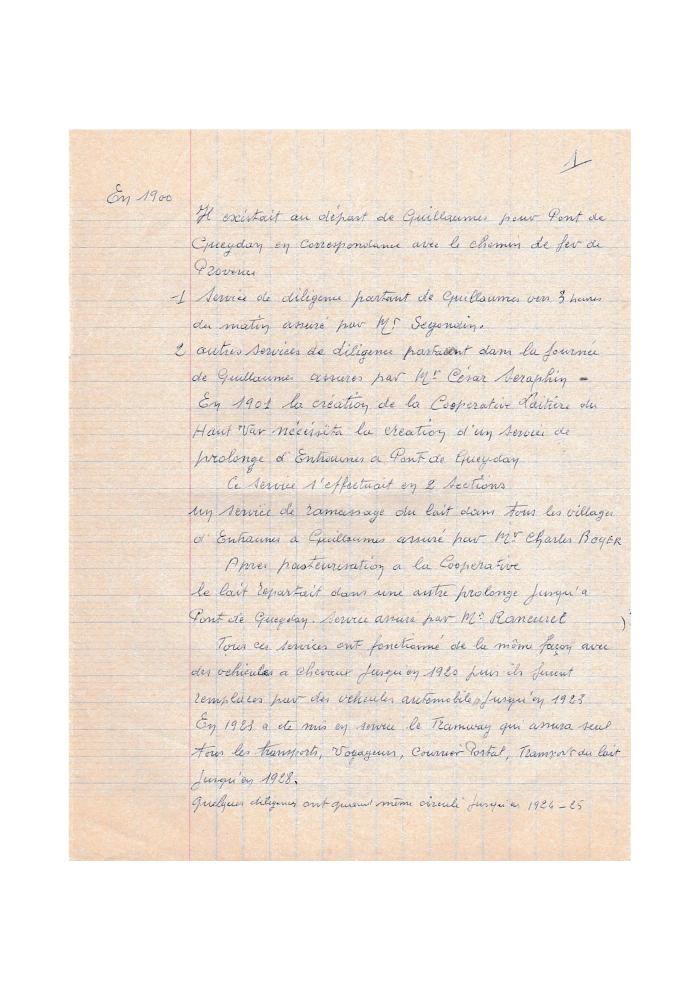 1
En 1900
Il existait au départ de Guillaumes pour Pont de
Gueydan en correspondance avec le chemin de fer de
Provence
-1 Service de diligence partant de Guillaumes vers 3 heures
du matin assuré par Mr Segondin.
2 autres services de diligence partaient dans la journée
de Guillaumes assures par Mr César Seraphin -
En 1901 la création de la Cooperative Laitière du
Haut Var nécéssita la creation d'un service de
prolonge d'Entraunes a Pont de Gueydan
Ce service s'effectuait en 2 Sections
un service de ramassage du lait dans tous les villages
d'Entraunes à Guillaumes assuré par Mr Charles BOYER
Apres pasteurisation a la Cooperative
le lait repartait dans une autre prolonge jusqu'a
Pont de Gueydan. Service assure par Mr Ranceurel
Tous ces services ont fonctionné de la même façon avec
des vehicules a chevaux jusqu'en 1920 puis ils furent
remplaces par des vehicules automobiles jusqu'en 1923
En 1923 a ete mis en service le Tramway qui assura seul
tous les transports, Voyageurs, Courrier Postal, Transport du lait
jusqu'en 1928.
Quelques diligences ont quand même circulé jusqu'en 1924-25